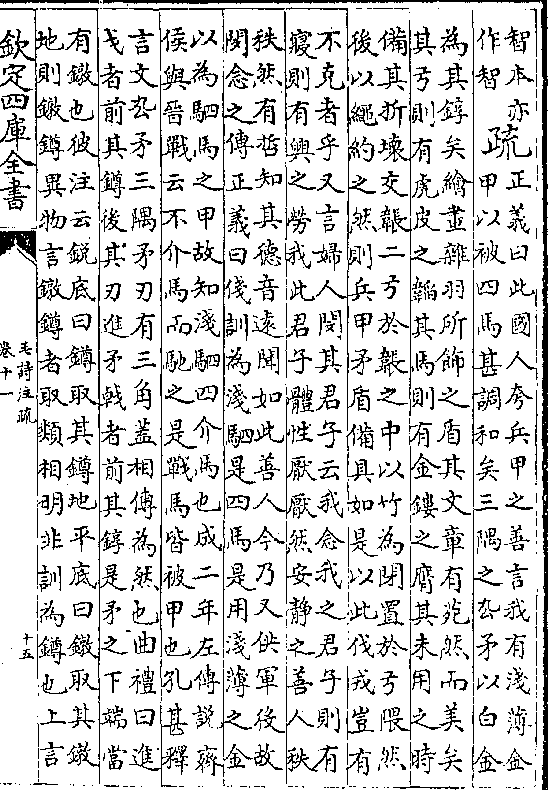 智本亦
作智
疏
正義曰此國人夸兵甲之善言我有淺薄金
甲以被四馬甚調和矣三隅之厹矛以白金
為其錞矣繪畫雜羽所飾之盾其文章有苑然而美矣
其弓則有虎皮之韜其馬則有金鏤之膺其未用之時
備其折壞交韔二弓於韔之中以竹為閉置於弓隈然
後以繩約之然則兵甲矛盾備具如是以此伐戎豈有
不克者乎又言婦人閔其君子云我念我之君子則有
寢則有興之勞我此君子體性厭厭然安靜之善人秩
秩然有哲知其德音遠聞如此善人今乃又供軍役故
閔念之傳正義曰俴訓為淺駟是四馬是用淺薄之金
以為駟馬之甲故知淺駟四介馬也成二年左傳說齊
侯與晉戰云不介馬而馳之是戰馬皆被甲也孔甚釋
言文厹矛三隅矛刃有三角蓋相傳為然也曲禮曰進
戈者前其鐏後其刃進矛戟者前其錞是矛之下端當
有鐓也彼注云銳底曰鐏取其鐏地平底曰鐓取其鐓
地則鐓鐏異物言鐓鐏者取類相明非訓為鐏也上言
欽定四庫全書
毛詩注疏
卷十一
十五